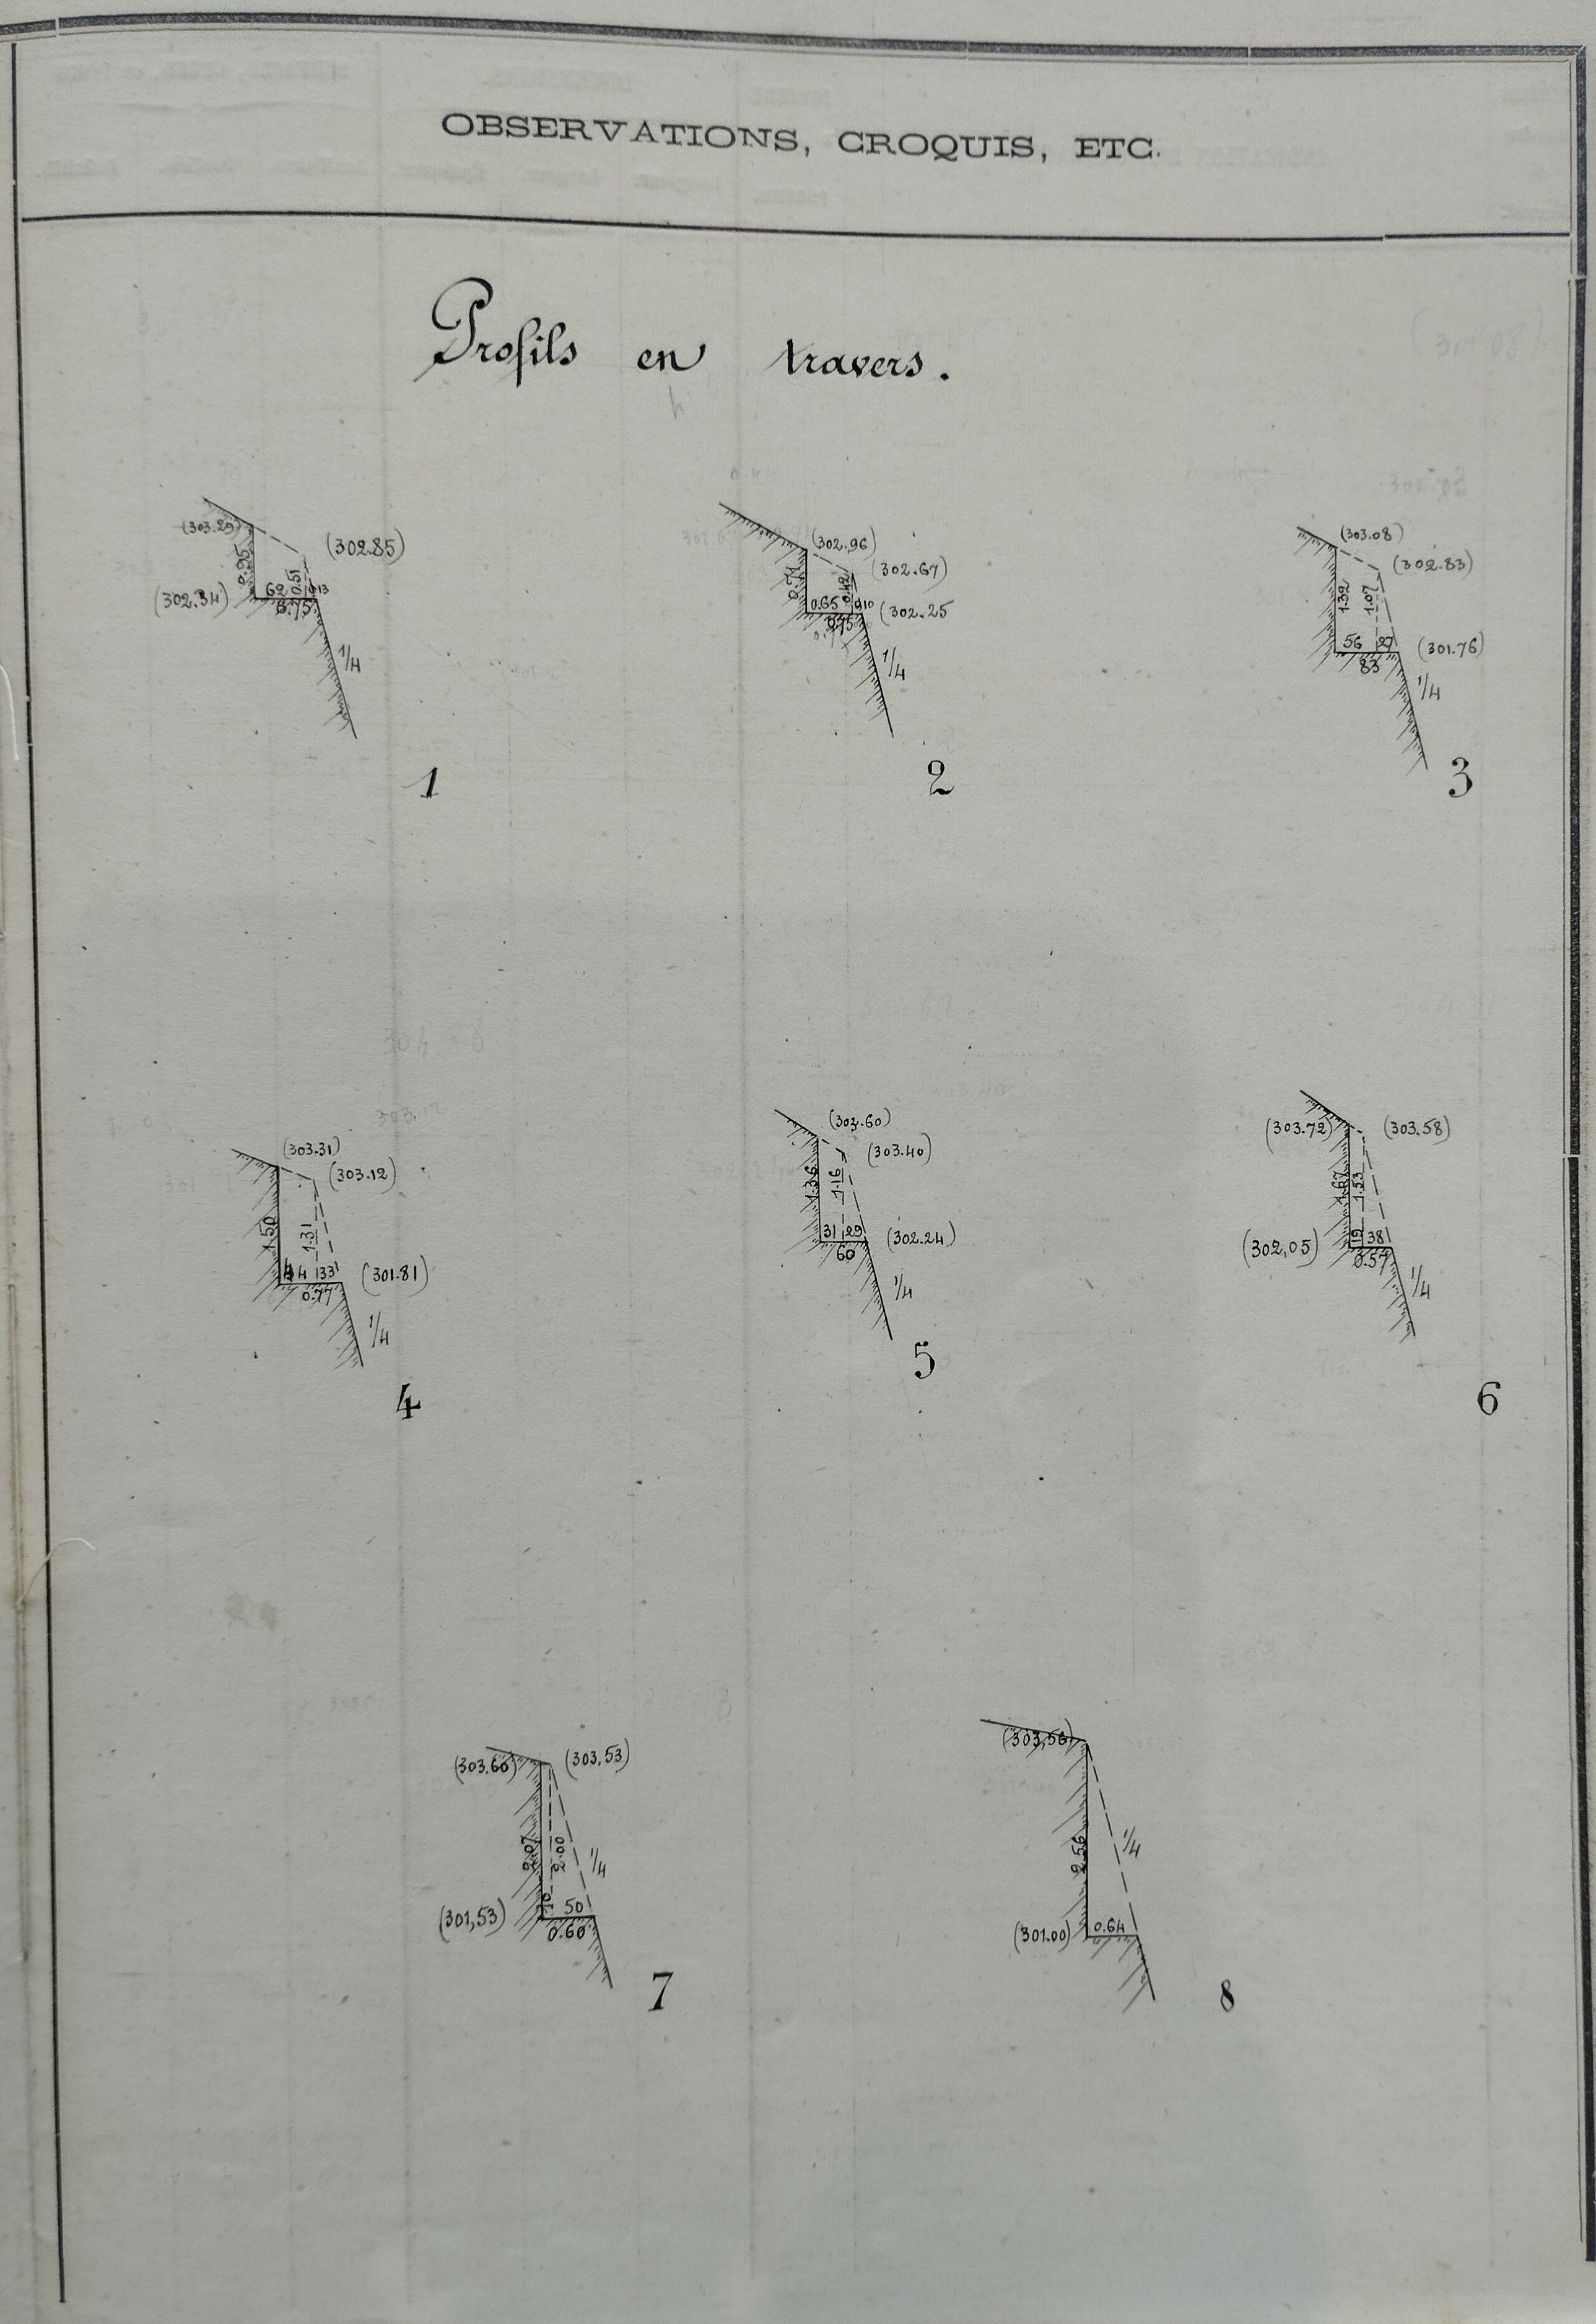 OBSERVATIONS, CROQUIS, ETC.
Profils en travers.
(303.29)
(302.85)
0.95
0.51
(302.34)
62
0.13
0.75
1/4
1
(302.96)
(302.67)
0.71
0.42
0.65
0.10
(302.25
0.75
1/4
2
(303.08)
(302.83)
1.32
1.07
56
27
(301.76)
83
1/4
3
(303.31)
(303.12)
1.50
1.31
44
33
(301.81)
0.77
1/4
4
(303.60)
(303.40)
1.36
1.16
31
29
(302.24)
60
1/4
5
(303.72)
(303.58)
1.67
1.53
(302,05)
19
38
0.57
1/4
6
(303.60)
(303,53)
2.07
2.00
1/4
(301,53)
10
50
0.60
7
(303,56)
1/4
2.56
(301.00)
0.64
8